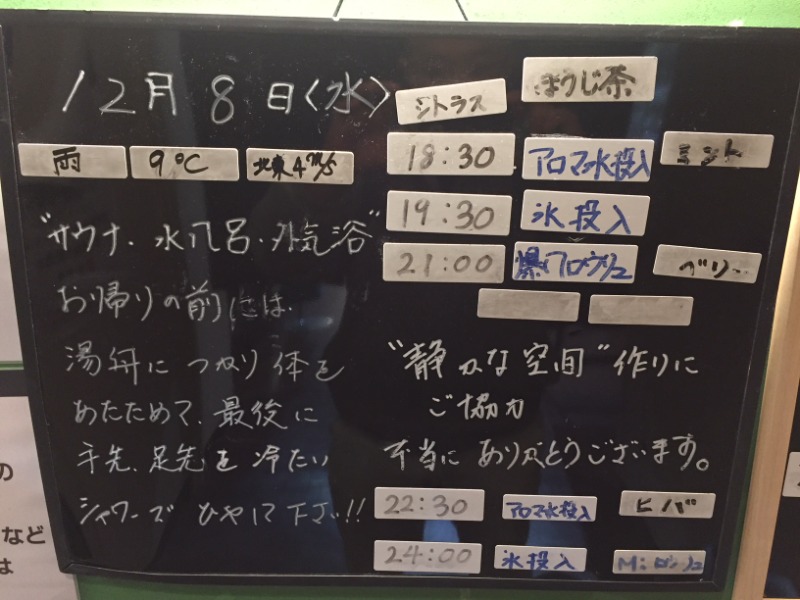 12月8日(水)
シトラス
ほうじ茶
雨
9℃
北東4m/s
18:30
アロマ水投入
ミント
19:30
氷投入
21:00
爆
ベリー
"サウナ、水風呂、外気浴"
お帰りの前には
湯舟につかり体を
あたためて、最後に
手先、足先を冷たい
シャワーで ひやして下さい!!
"静かな空間"作りに
ご協力
本当にありがとうございます。
22:30
アロマ水投入
ヒバ
24:00
氷投入
の
など
は